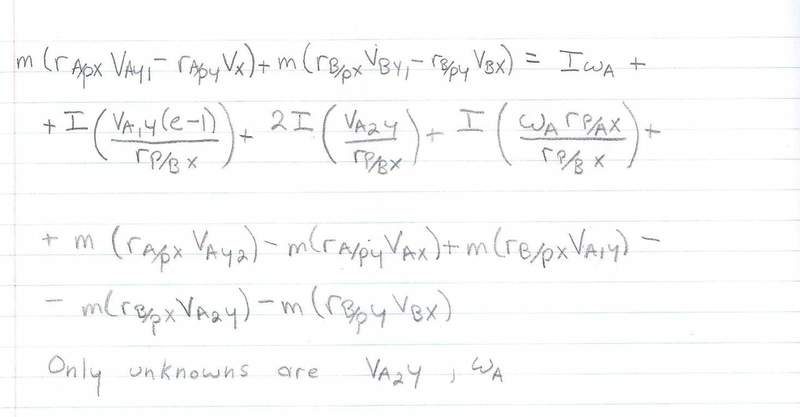 m (r_{A/px} V_{Ay1} - r_{A/py} V_x) + m (r_{B/px} V_{By1} - r_{B/py} V_{Bx}) = I ω_A +
+ I ( \frac{V_{A1y} (e-1)}{r_{P/B x}} ) + 2I ( \frac{V_{A2y}}{r_{P/Bx}} ) + I ( \frac{ω_A r_{P/Ax}}{r_{P/B x}} ) +
+ m (r_{A/px} V_{Ay2}) - m(r_{A/py} V_{Ax}) + m(r_{B/px} V_{A1y}) -
- m(r_{B/px} V_{A2y}) - m(r_{B/py} V_{Bx})
Only unknowns are V_{A2y} , ω_A